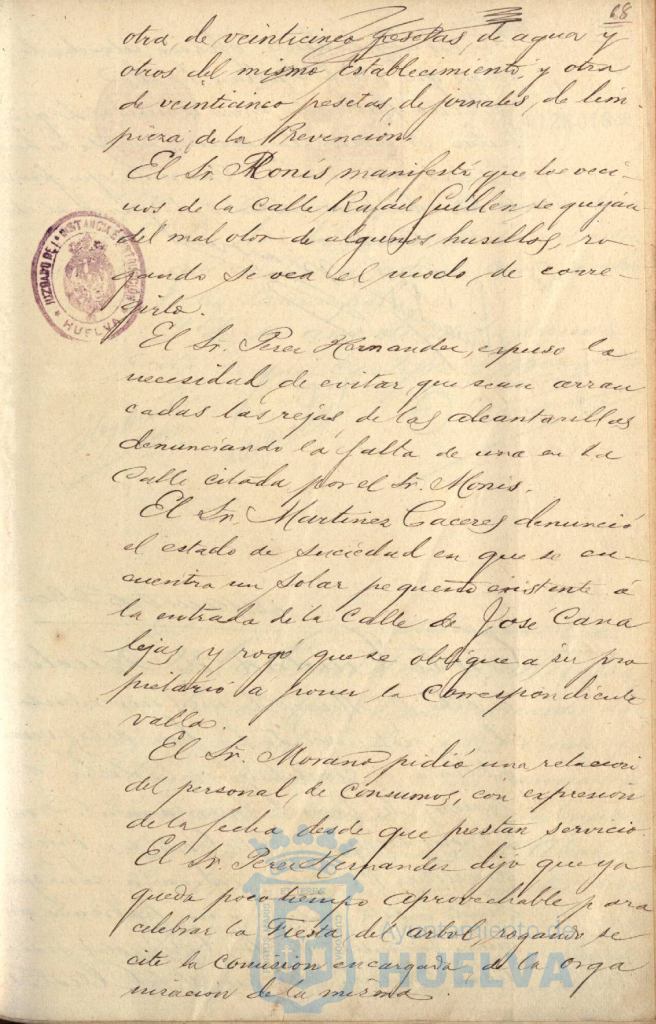 68
otra de veinticinco pesetas, de agua y
otros del mismo establecimiento, y otra
de veinticinco pesetas, de jornales, de lim-
pieza, de la Prevencion.
El Sr. Monis manifestó que los veci-
nos de la calle Rafael Guillen se quejan
del mal olor de algunos husillos, ro-
gando se vea el modo de corre-
girlo.
El Sr. Perez Hernandez, expuso la
necesidad de evitar que sean arran
cadas las rejas, de las alcantarillas
denunciando la falta de una en la
calle citada por el Sr. Monis.
El Sr. Martinez Caceres denunció
el estado de suciedad en que se en-
cuentra un solar pequeño existente á
la entrada de la calle de José Cana
lejas y rogó que se obligue a su pro
pietario a poner la correspondiente
valla.
El Sr. Morano pidió una relacion
del personal, de Consumos, con expresion
de la fecha desde que prestan servicio.
El Sr. Perez Hernandez dijo que ya
queda poco tiempo aprovechable para
celebrar la Fiesta del arbol, rogando se
cite la Comision encargada, de la orga
nizacion de la misma.
JUZGADO DE 1ª INSTANCIA E INSTRUCCION
HUELVA
Ayuntamiento de
HUELVA